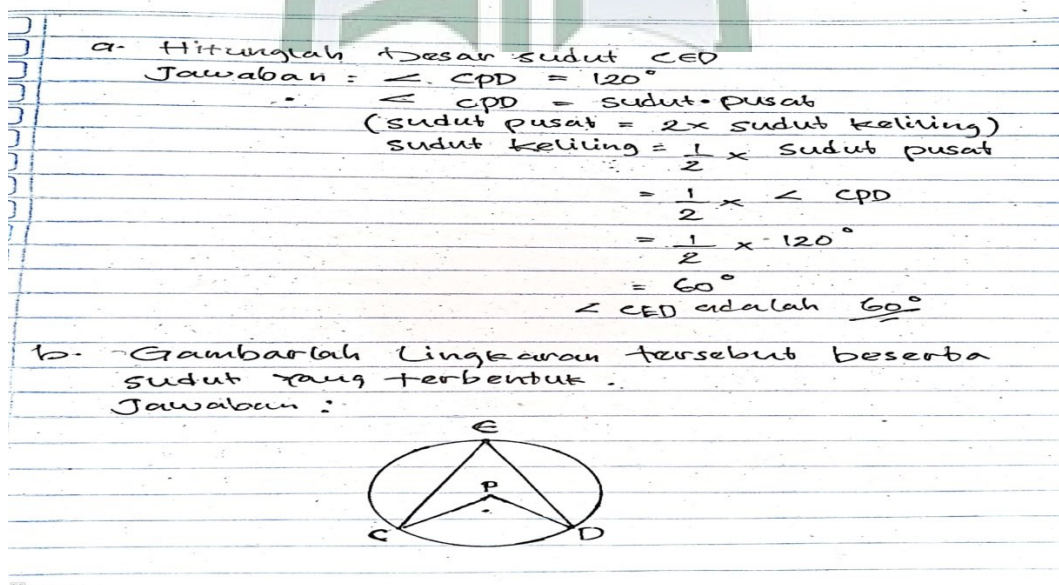 a. Hitunglah besar sudut CED
Jawaban : ∠ CPD = 120°
∠ CPD = sudut pusat
(sudut pusat = 2x sudut keliling)
sudut keliling = 1/2 x sudut pusat
= 1/2 x ∠ CPD
= 1/2 x 120°
= 60°
∠ CED adalah 60°
b. Gambarlah Lingkaran tersebut beserta
sudut yang terbentuk.
Jawaban :
E
P
C D